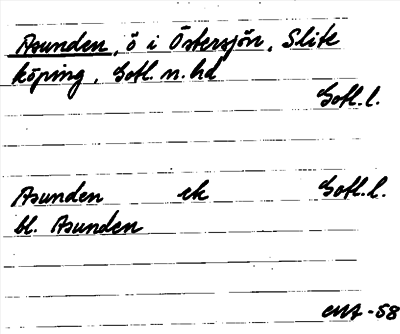 Asunden, ö i Östersjön, Slite
köping, Gotl. n. hd
Gotl. l.
Asunden ek Gotl. l.
bl. Asunden
-58